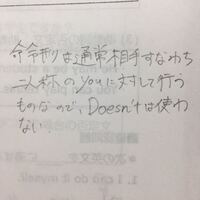 命令形は通常相手すなわち
二人称のyouに対して行う
ものなので、Doesn'tは使わ
ない
1. I can do it myself